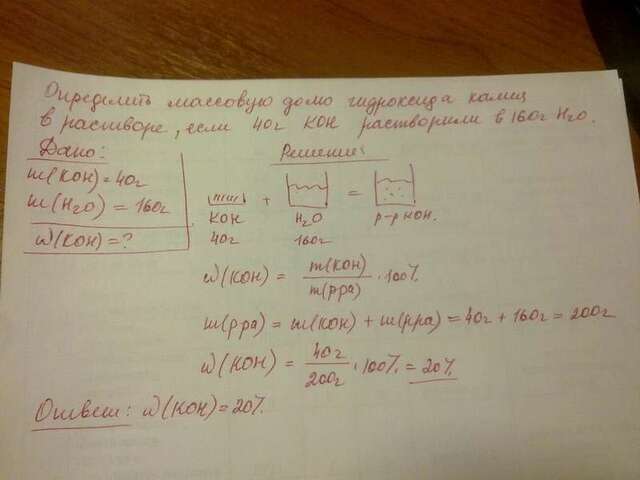 Определить массовую долю гидроксида калия
в растворе, если 40г KOH растворили в 160г H₂O.
Дано:
m(KOH) = 40г
m(H₂O) = 160г
ω(KOH) = ?
Решение:
+ =
KOH H₂O р-р KOH.
40г 160г
ω(KOH) = m(KOH) / m(рра) · 100%
m(рра) = m(KOH) + m(рра) = 40г + 160г = 200г
ω(KOH) = 40г / 200г · 100% = 20%
Ответ: ω(KOH) = 20%.